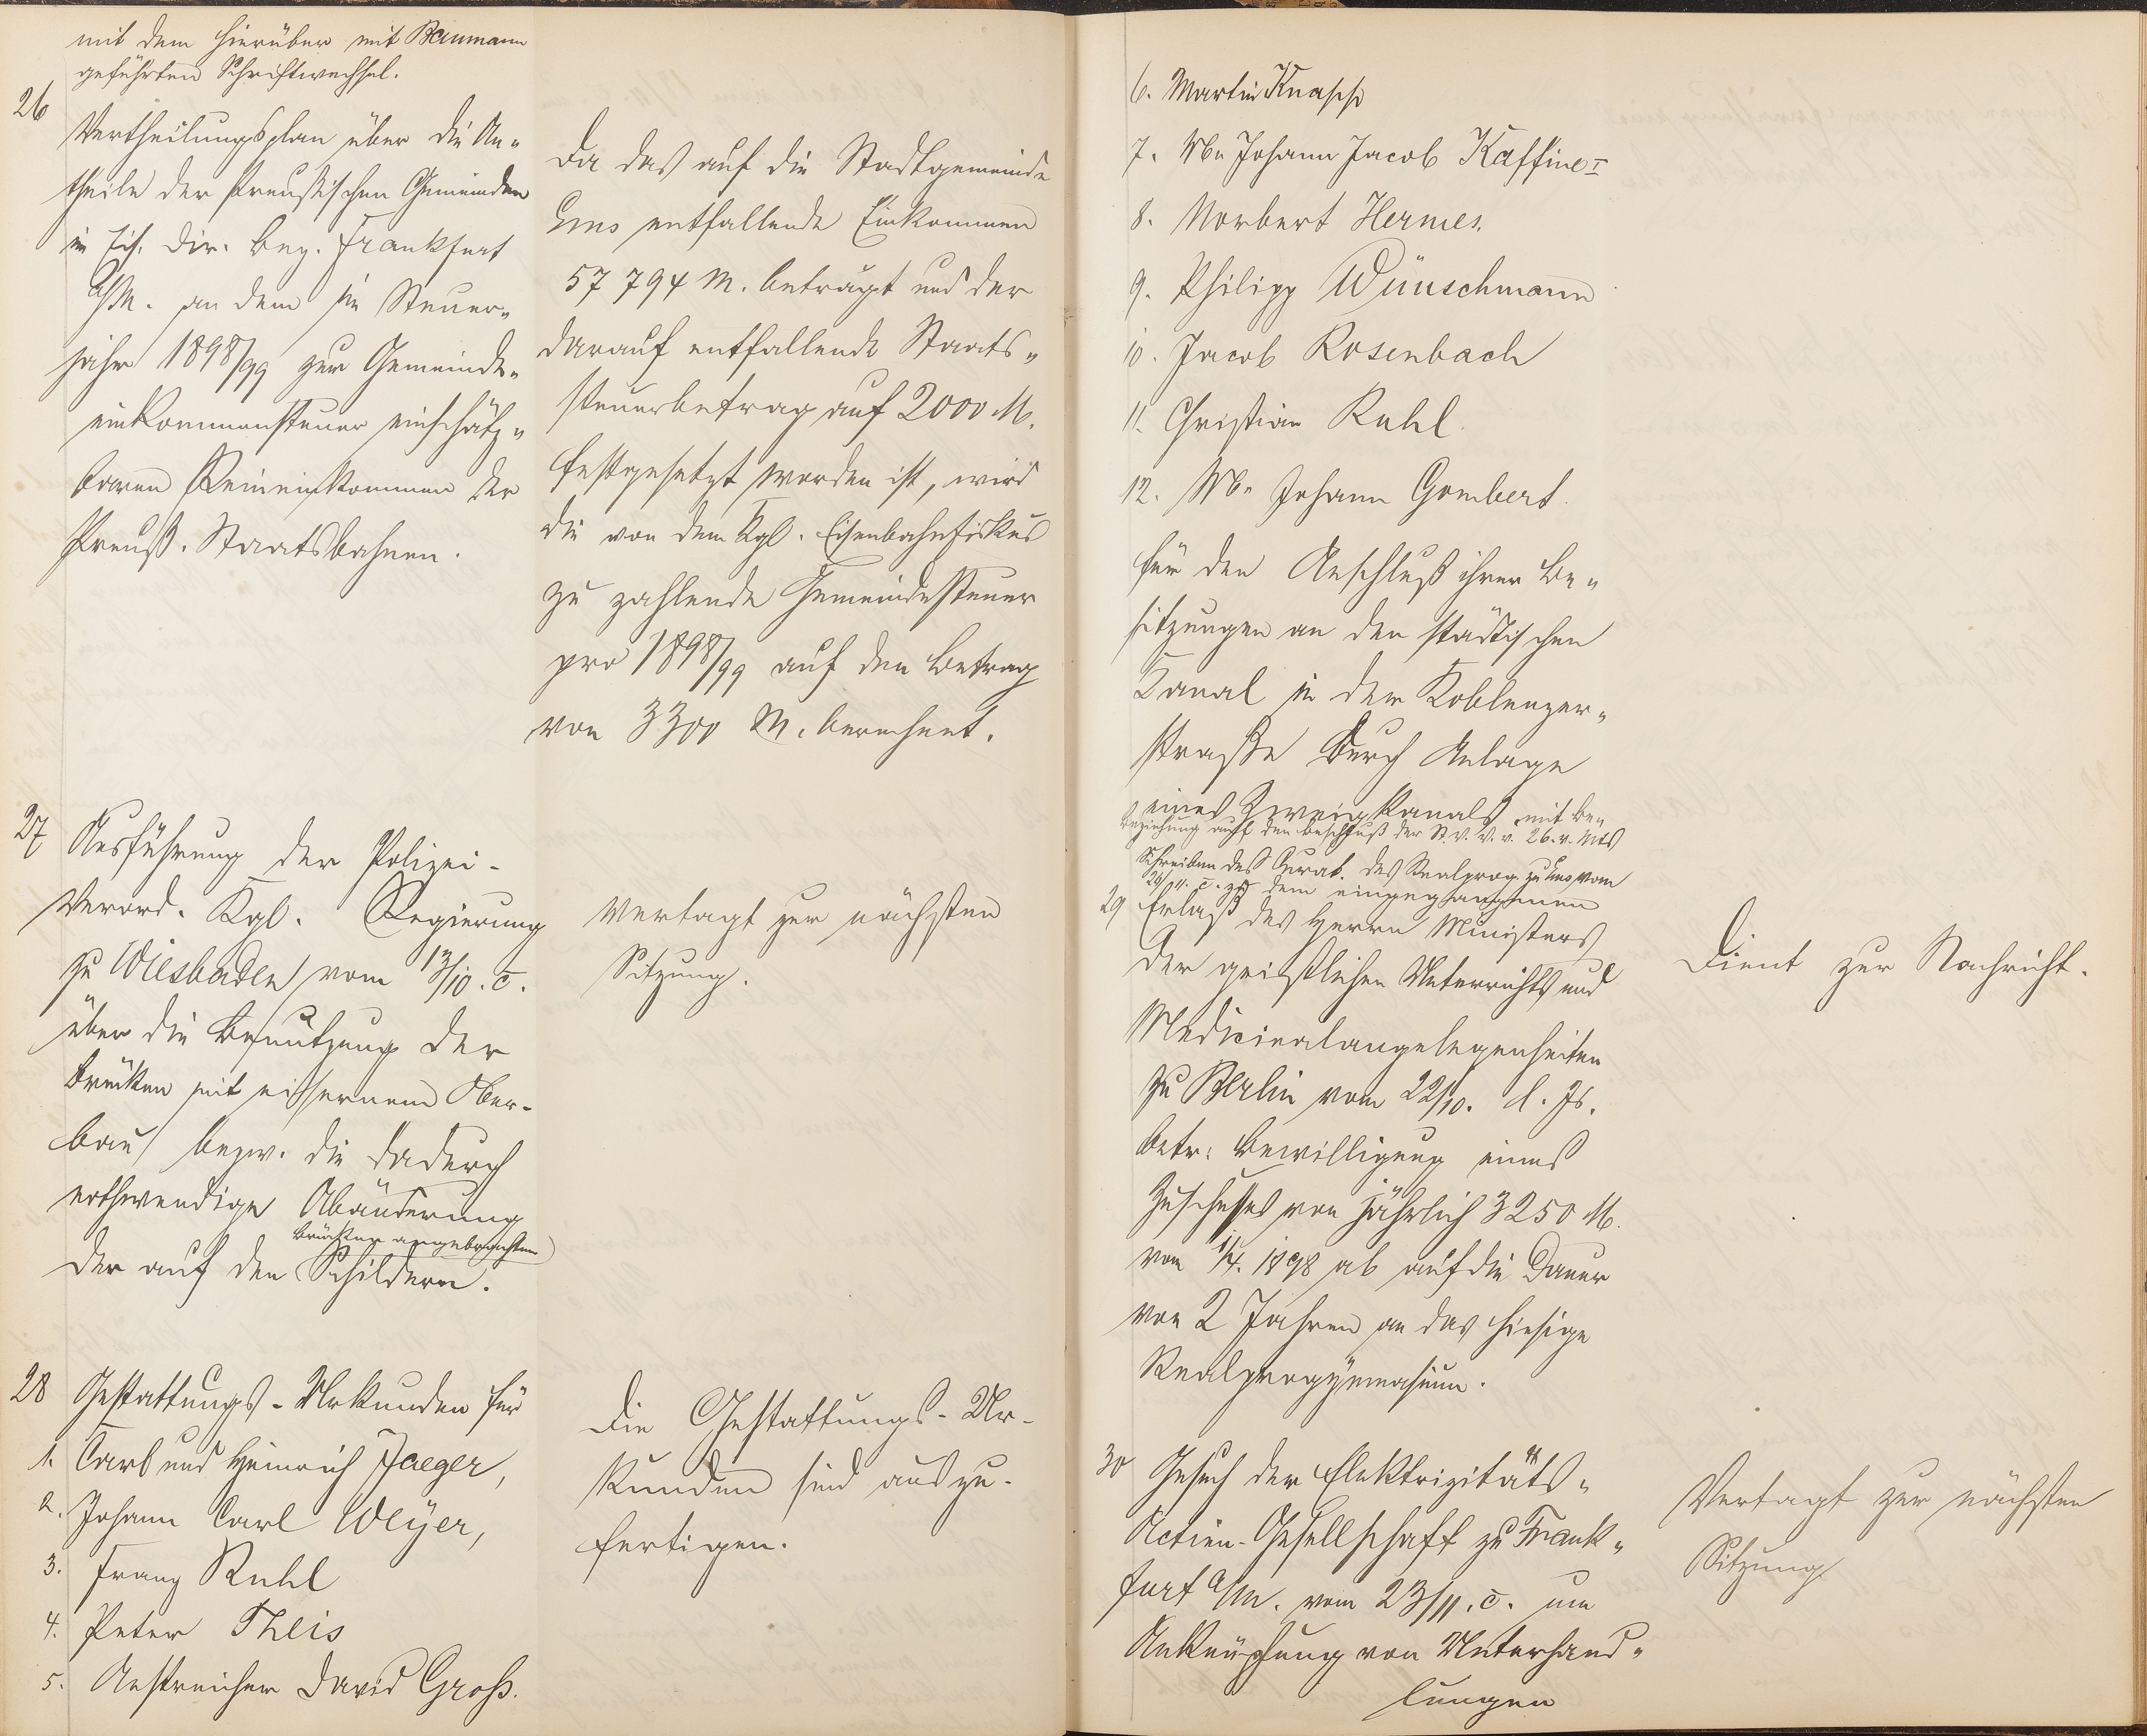 mit dem hierüber mit Baumann
geführten Schriftwechsel.
26
Vertheilungsplan über die An-
theile der Preußischen Gemeinden
im Eis. Dir. Bez. Frankfurt
a/M. an dem im Steuer-
jahr 1898/99 zur Gemeinde-
einkommensteuer einschätz-
baren Reineinkommen der
Preuß. Staatsbahnen.
Da das auf die Stadtgemeinde
Ems entfallende Einkommen
57 794 M. beträgt und der
darauf entfallende Staats-
steuerbetrag auf 2000 M.
festgesetzt worden ist, wird
die von dem Kgl. Eisenbahnfiskus
zu zahlende Gemeindesteuer
pro 1898/99 auf den Betrag
von 3300 M. berechnet.
27 Ausführung der Polizei-
Verord. Kgl. Regierung
zu Wiesbaden vom 13/10. c.
über die Benutzung der
Brücken mit eisernem Ober-
bau bezw. die dadurch
nothwendige Abänderung
Brücken angebrachten
der auf den Schildern.
Vertagt zur nächsten
Sitzung.
28 Gestattungs-Urkunden für
1. Carl und Heinrich Jaeger,
2. Johann Carl Weyer,
3. Franz Ruhl
4. Peter Theis
5. Anstreicher David Groß.
Die Gestattungs-Ur-
kunden sind auszu-
fertigen.
6. Martin Knaschi
7. Johann Jacob Kaffine I
8. Norbert Hermes.
9. Philipp Wünschmann
10. Jacob Rosenbach
11. Christian Ruhl.
12. Johann Gombert.
für den Anschluß ihrer Be-
sitzungen an den städtischen
Kanal in der Koblenzer-
straße durch Anlage
eines Zweigkanals mit Be-
ziehung auf den Beschluß der St. V. V. v. 26. v. Mts
Schreiben des Curat. des Realprog. zu Ems vom
26/11. c. zu dem eingegangenen
29 Erlaß des Herrn Ministers
der geistlichen Unterrichts und
Medicinalangelegenheiten
zu Berlin vom 22/10. d. Js.
betr. Bewilligung eines
Zuschusses von jährlich 3250 M.
vom 1/4. 1898 ab auf die Dauer
von 2 Jahren an das hiesige
Realprogymnasium.
Dient zur Nachricht.
30 Gesuch der Elektrizitäts-
Actien-Gesellschaft zu Frank-
furt a/M. vom 23/11. c. um
Anknüpfung von Unterhand-
lungen
Vertagt zur nächsten
Sitzung